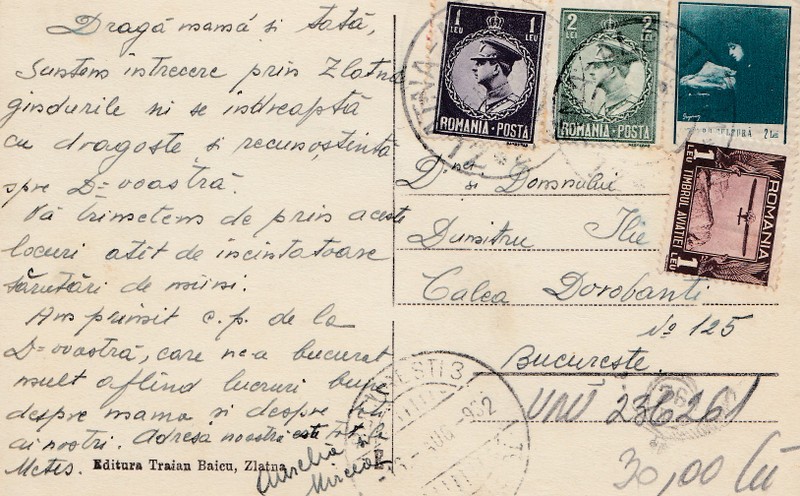 Dragă mamă si tată,
Suntem in trecere prin Zlatna
gindurile ni se indreaptă
cu dragoste si recunoștință
spre D=voastră.
Vă trimetem de prin aceste
locuri atit de incintatoare
sărutări de miini.
Am primit c.p. de la
D=voastră, care ne-a bucurat
mult aflind lucruri bune
despre mama si despre toti
ai nostri. Adresa noastră este tot la
Metes.
Aurelia si
Mircea
Editura Traian Baicu, Zlatna
1 1
LEU LEU
ROMANIA·POSTA
2 2
LEU LEI
ROMANIA·POSTA
2 Lei
ROMANIA
TIMBRUL AVIAȚIEI
1 LEU
1 LEU
D-nei si Domnului
Dumitru Ilie
Calea Dorobanti
No 125
Bucureste
BUCUREȘTI 3
AUG 932
UNU 236261
30,00 lei